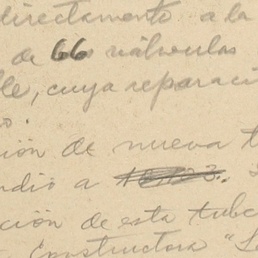 directamente a la
de 66 válvulas
lle, cuya reparaci
o.
ión de nueva t
ndió a
ción de esta tube
Constructora "L